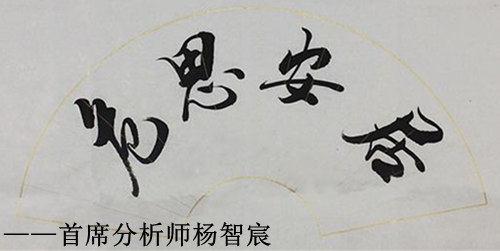 居安思危
——首席分析师杨智宸